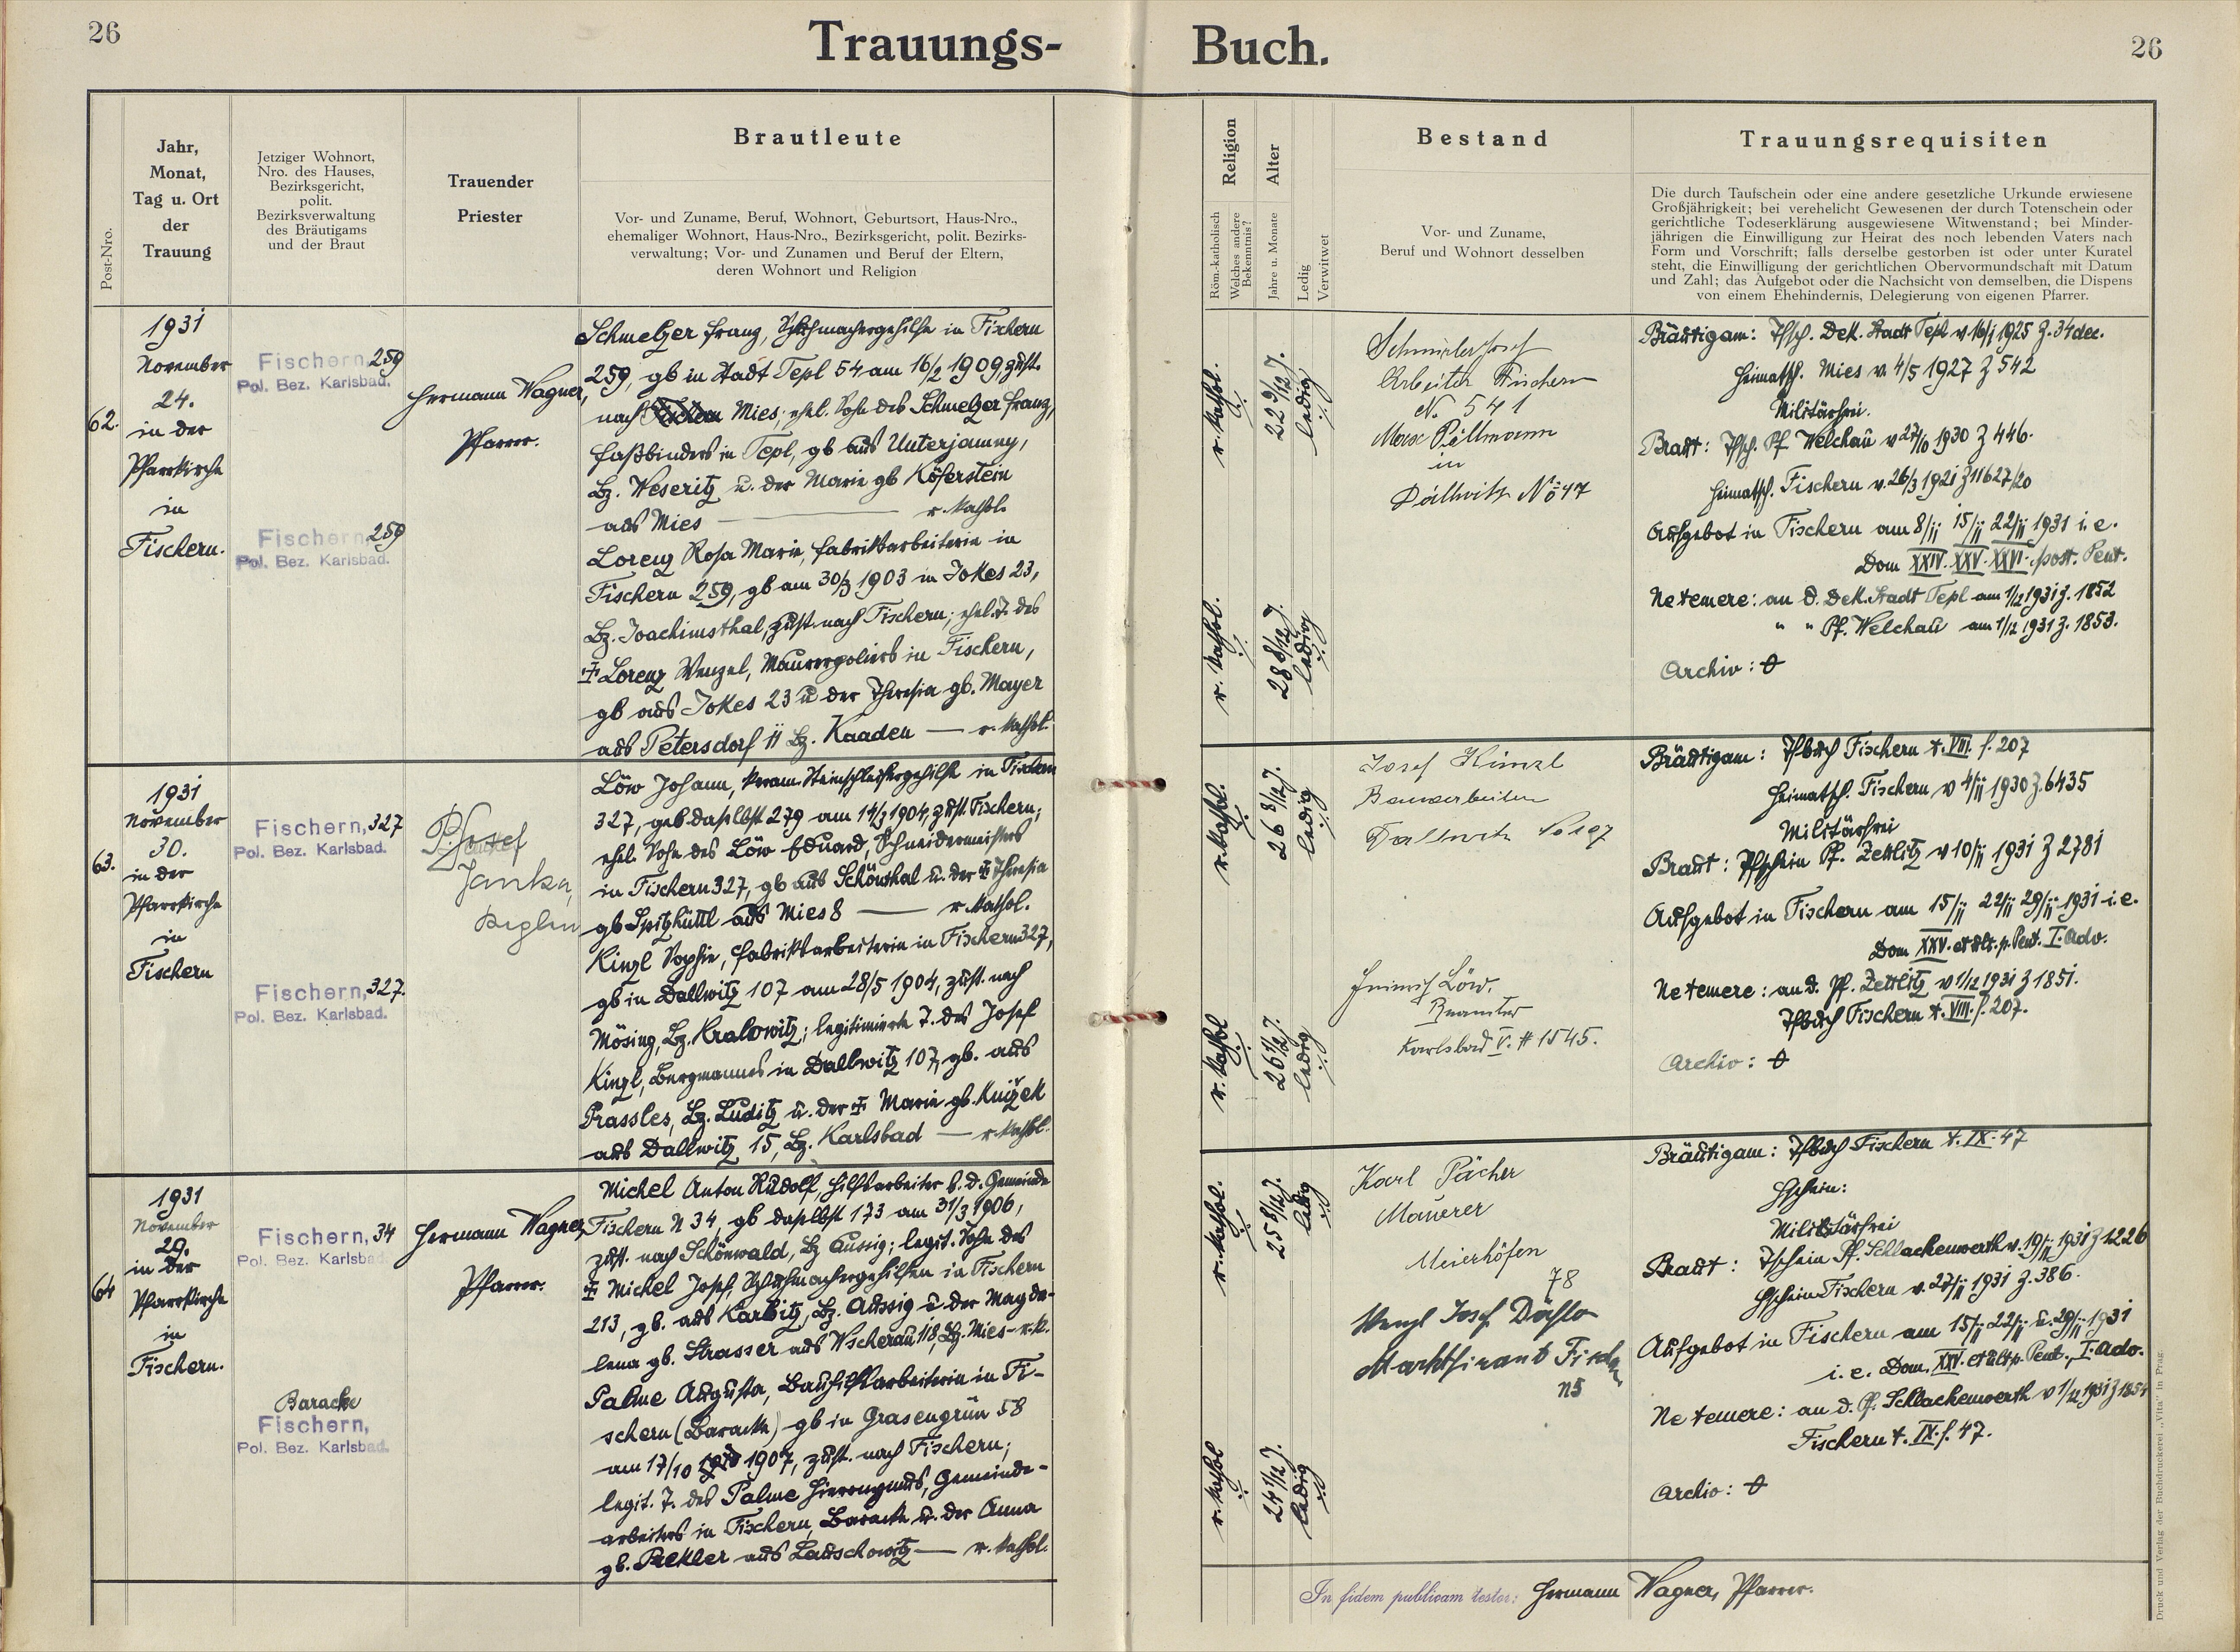 26
Trauungs-
Buch.
26
Post-Nro.
Jahr,
Monat,
Tag u. Ort
der
Trauung
Jetziger Wohnort,
Nro. des Hauses,
Bezirksgericht,
polit.
Bezirksverwaltung
des Bräutigams
und der Braut
Trauender
Priester
Brautleute
Vor- und Zuname, Beruf, Wohnort, Geburtsort, Haus-Nro.,
ehemaliger Wohnort, Haus-Nro., Bezirksgericht, polit. Bezirks-
verwaltung; Vor- und Zunamen und Beruf der Eltern,
deren Wohnort und Religion
Religion
Röm.-katholisch
Welches andere
Bekenntnis?
Alter
Jahre u. Monate
Ledig
Verwitwet
Bestand
Vor- und Zuname,
Beruf und Wohnort desselben
Trauungsrequisiten
Die durch Taufschein oder eine andere gesetzliche Urkunde erwiesene
Großjährigkeit; bei verehelicht Gewesenen der durch Totenschein oder
gerichtliche Todeserklärung ausgewiesene Witwenstand; bei Minder-
jährigen die Einwilligung zur Heirat des noch lebenden Vaters nach
Form und Vorschrift; falls derselbe gestorben ist oder unter Kuratel
steht, die Einwilligung der gerichtlichen Obervormundschaft mit Datum
und Zahl; das Aufgebot oder die Nachsicht von demselben, die Dispens
von einem Ehehindernis, Delegierung von eigenen Pfarrer.
62.
1931
November
24.
in der
Pfarrkirche
in
Fischern.
Fischern, 259
Pol. Bez. Karlsbad.
Fischern, 259
Pol. Bez. Karlsbad.
Hermann Wagner,
Pfarrer.
Schmelzer Franz, Schuhmachergehilfe in Fischern
259, gb in Stadt Tepl 54 am 16/2 1909, zust.
nach Mies; ehel. Sohn des Schmelzer Franz,
Faßbinders in Tepl, gb aus Unterjamny,
Bz. Weseritz u. der Marie gb Köferstein
aus Mies — r. kathol.
Lorenz Rosa Marie, Fabriksarbeiterin in
Fischern 259, gb am 30/3 1903 in Jokes 23,
Bz. Joachimsthal, zust. nach Fischern; ehel. T. des
Lorenz Wenzel, Maurerpoliers in Fischern,
gb aus Jokes 23 u der Theresia gb. Mayer
aus Petersdorf 11 Bz. Kaaden — r. kathol.
r. kathol.
22 9/12 J.
ledig
r. kathol.
28 8/12 J.
ledig
Arbeiter Fischern
N. 541
Max Pillmann
in
Dallwitz No 47
Bräutigam: Tfsch. Dek. Stadt Tepl v 16/1 1925 Z. 34 dec.
Heimatsch. Mies v. 4/5 1927 Z 542
Militärfrei.
Braut: Tfsch. Pf. Welchau v 27/10 1930 Z 446.
Heimatsch. Fischern v. 26/3 1921 Z 11627/20
Aufgebot in Fischern am 8/11 15/11 22/11 1931 i. e.
Dom XXIV. XXV. XXVI. post. Pent.
Ne temere: an d. Dek. Stadt Tepl am 1/12 1931 Z. 1852
" " Pf. Welchau am 1/12 1931 Z. 1853.
Archiv:
63.
1931
November
30.
in der
Pfarrkirche
in
Fischern
Fischern, 327
Pol. Bez. Karlsbad.
Fischern, 327.
Pol. Bez. Karlsbad.
Janka,
Löw Johann, keram. Steinschleifergehilfe in Fischern
327, geb daselbst 279 am 14/3 1904, zust. Fischern;
ehel. Sohn des Löw Eduard, Schneidermeisters
in Fischern 327, gb aus Schönthal u. der Theresia
gb Spitzhüttl aus Mies 8 — r. kathol.
Kinzl Sophie, Fabriksarbeiterin in Fischern 327,
gb in Dallwitz 107 am 28/5 1904, zust. nach
Mösing, Bz. Kralowitz; legitimierte T. des Josef
Kinzl, Bergmannes in Dallwitz 107, gb. aus
Prassles, Bz. Luditz u. der Marie gb. Knižek
aus Dallwitz 15, Bz. Karlsbad — r. kathol.
r. kathol.
26 8/12 J.
ledig
r. kathol
26 1/2 J.
ledig
Josef Kinzl
Bauarbeiter
Dallwitz No 107
Heinrich Löw.
Beamter
Karlsbad V. # 1545.
Bräutigam: Tfbuch Fischern t. VIII. f. 207
Heimatsch. Fischern v 4/11 1930 Z. 6435
Militärfrei
Braut: Tfschein Pf. Zettlitz v 10/11 1931 Z 2781
Aufgebot in Fischern am 15/11 22/11 29/11 1931 i. e.
Dom XXV. et ult. p. Pent. I. Adv.
Ne temere: an d. Pf. Zettlitz v 1/12 1931 Z 1851.
Tfbuch Fischern t. VIII. f. 207.
Archiv:
64
1931
November
29.
in der
Pfarrkirche
in
Fischern.
Fischern, 34
Pol. Bez. Karlsbad
Baracke
Fischern,
Pol. Bez. Karlsbad.
Hermann Wagner,
Pfarrer.
Michel Anton Rudolf, Hilfsarbeiter b. d. Gemeinde
Fischern N 34, gb daselbst 173 am 31/3 1906,
zust. nach Schönwald, Bz Aussig; legit. Sohn des
Michel Josef, Schuhmachergehilfen in Fischern
213, gb. aus Karbitz, Bz. Aussig u. der Magda-
lena gb. Strasser aus Wscherau 118, Bz. Mies - r. k.
Palme Augusta, Bauhilfsarbeiterin in Fi-
schern (Baracke) gb in Grasengrün 58
am 17/10 1907, zust. nach Fischern;
legit. T. des Palme Hieronymus, Gemeinde-
arbeiters in Fischern, Baracke u. der Anna
gb. Pekler aus Lauschowitz — r. kathol.
r. kathol.
25 8/12 J.
ledig
r. kathol
24 1/12 J.
ledig
Karl Pächer
Maurer
Meierhöfen
78
Wenzl Josef
Marktfierant Fischern
n5
Bräutigam: Tfbuch Fischern t. IX. 47
Hschein:
Militärfrei
Braut: Tfschein Pf. Schlackenwerth v. 19/11 1931 Z 1226
Hschein Fischern v. 27/11 1931 Z. 386.
Aufgebot in Fischern am 15/11 22/11 u. 29/11 1931
i. e. Dom. XXV. et ult p. Pent., I. Adv.
Ne temere: an d. Pf. Schlackenwerth v 1/12 1931 Z 1854
Fischern t. IX. f. 47.
Archiv:
In fidem publicam testor: Hermann Wagner, Pfarrer.
Druck und Verlag der Buchdruckerei „Vita" in Prag.